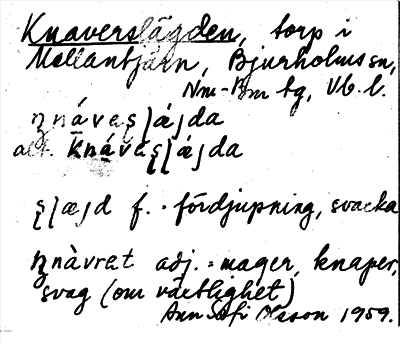 Knaverslägden, torp i
Mellantjärn, Bjurholms sn,
Nm-Bm tg, Vb. l.
ŋnávaʂʅájda
alt. knávaʂʅájda
ʂʅæjd f. = fördjupning, svacka
ŋnàvret adj. = mager, knaper,
svag (om växtlighet)
Ann Sofi Olsson 1959.